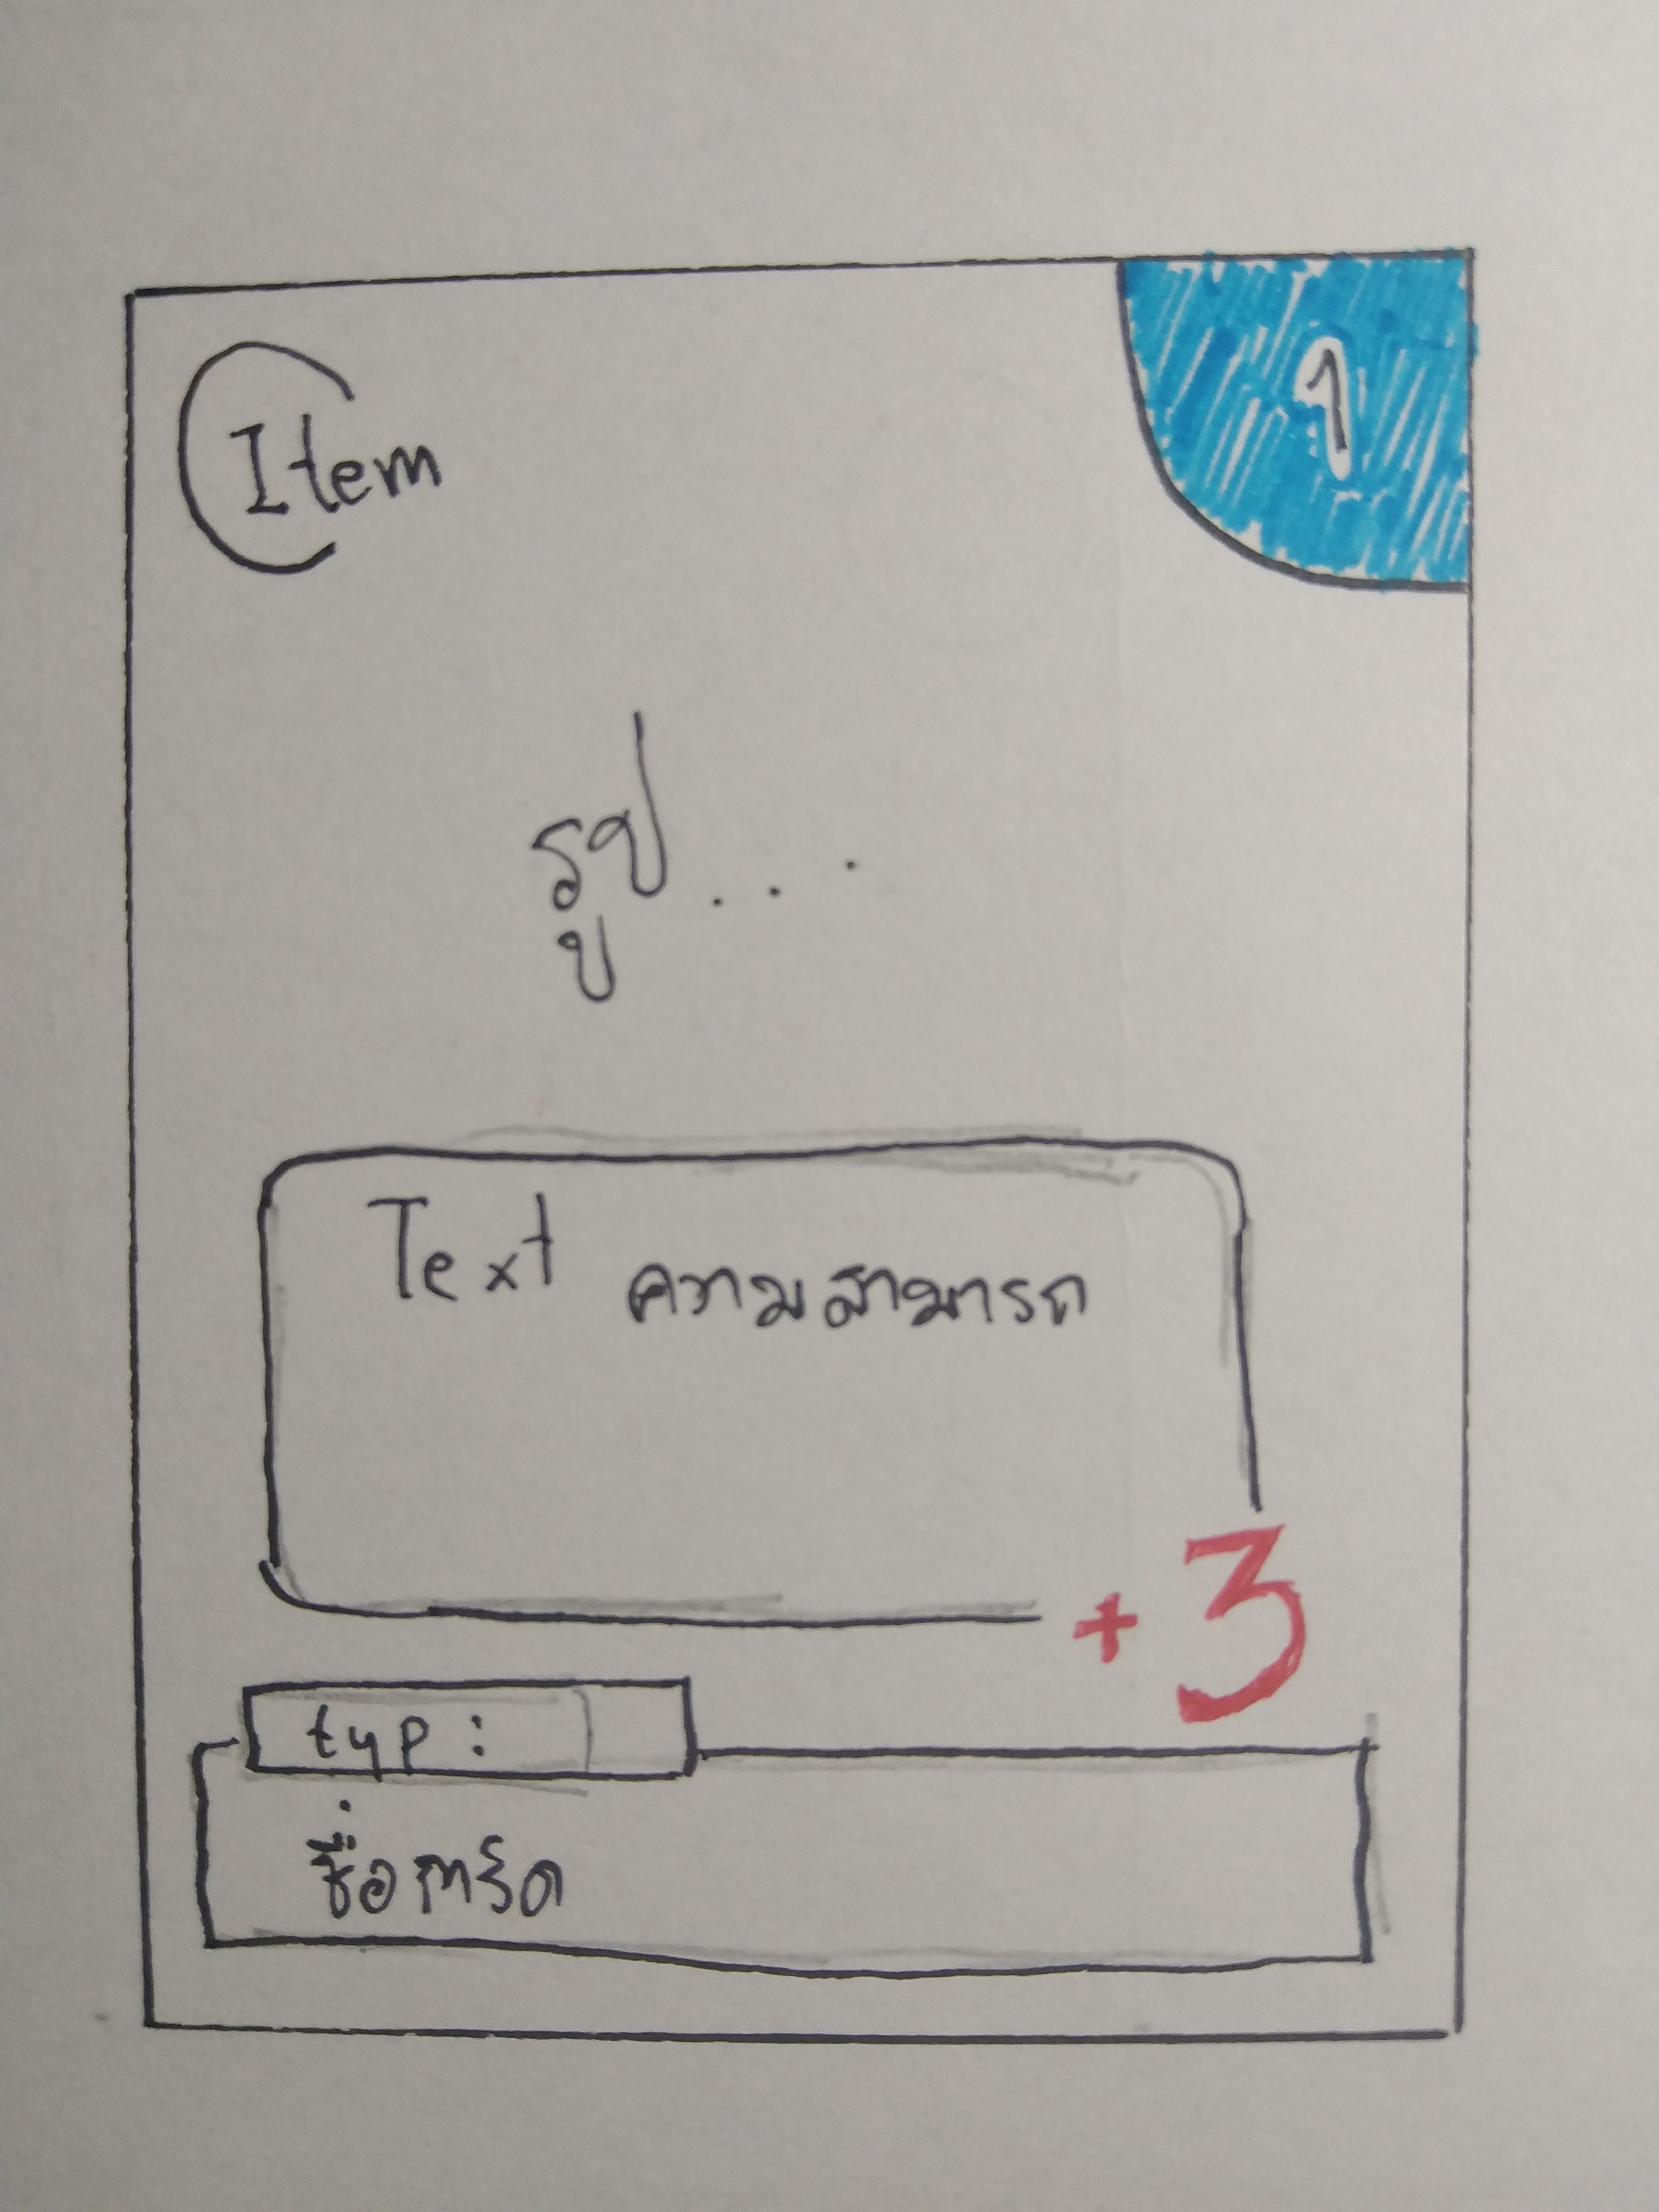 Item
1
รูป...
Text ความสามารถ
+3
typ:
ชื่อการ์ด